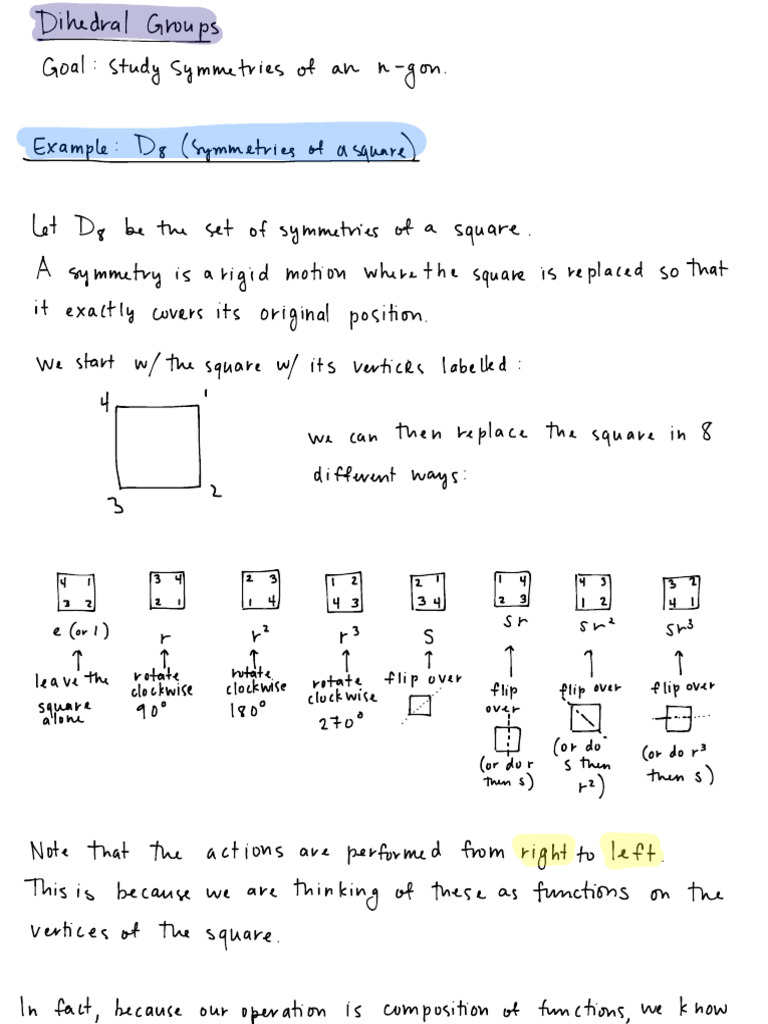 Dihedral Groups
Goal: Study Symmetries of an n-gon.
Example: D8 (Symmetries of a square)
Let D8 be the set of symmetries of a square.
A symmetry is a rigid motion where the square is replaced so that
it exactly covers its original position.
We start w/ the square w/ its vertices labelled:
4 1
3 2
we can then replace the square in 8
different ways:
4 1 3 4 2 3 1 2 2 1 1 4 4 3 3 2
3 2 2 1 1 4 4 3 3 4 2 3 1 2 4 1
e (or 1) r r² r³ S sr sr² sr³
↑ ↑ ↑ ↑ ↑ ↑ ↑ ↑
leave the square alone
rotate clockwise 90°
rotate clockwise 180°
rotate clockwise 270°
flip over
flip over
(or do r then s)
flip over
(or do s then r²)
flip over
(or do r³ then s)
Note that the actions are performed from right to left.
This is because we are thinking of these as functions on the
vertices of the square.
In fact, because our operation is composition of functions, we know